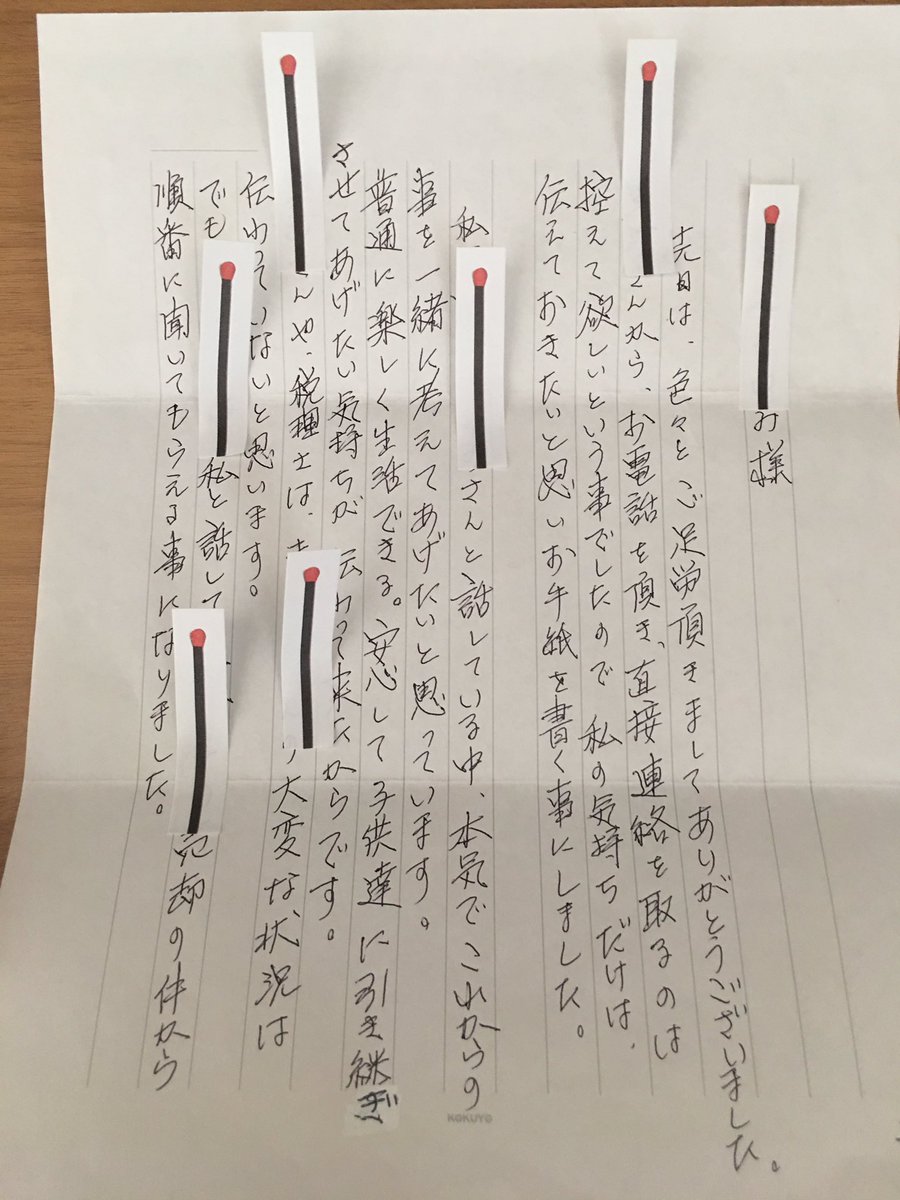 み様
先日は、色々とご足労頂きましてありがとうございました。
さんから、お電話を頂き、直接連絡を取るのは
控えて欲しいという事でしたので私の気持ちだけは、
伝えておきたいと思いお手紙を書く事にしました。
私 さんと話している中、本気でこれからの
事を一緒に考えてあげたいと思っています。
普通に楽しく生活できる。安心して子供達に引き継ぎ
させてあげたい気持ちが 伝わって来たからです。
んや、税理士は、 大変な状況は
伝わっていないと思います。
でも 私と話して 売却の件から
順番に聞いてもらえる事になりました。
KOKUYO